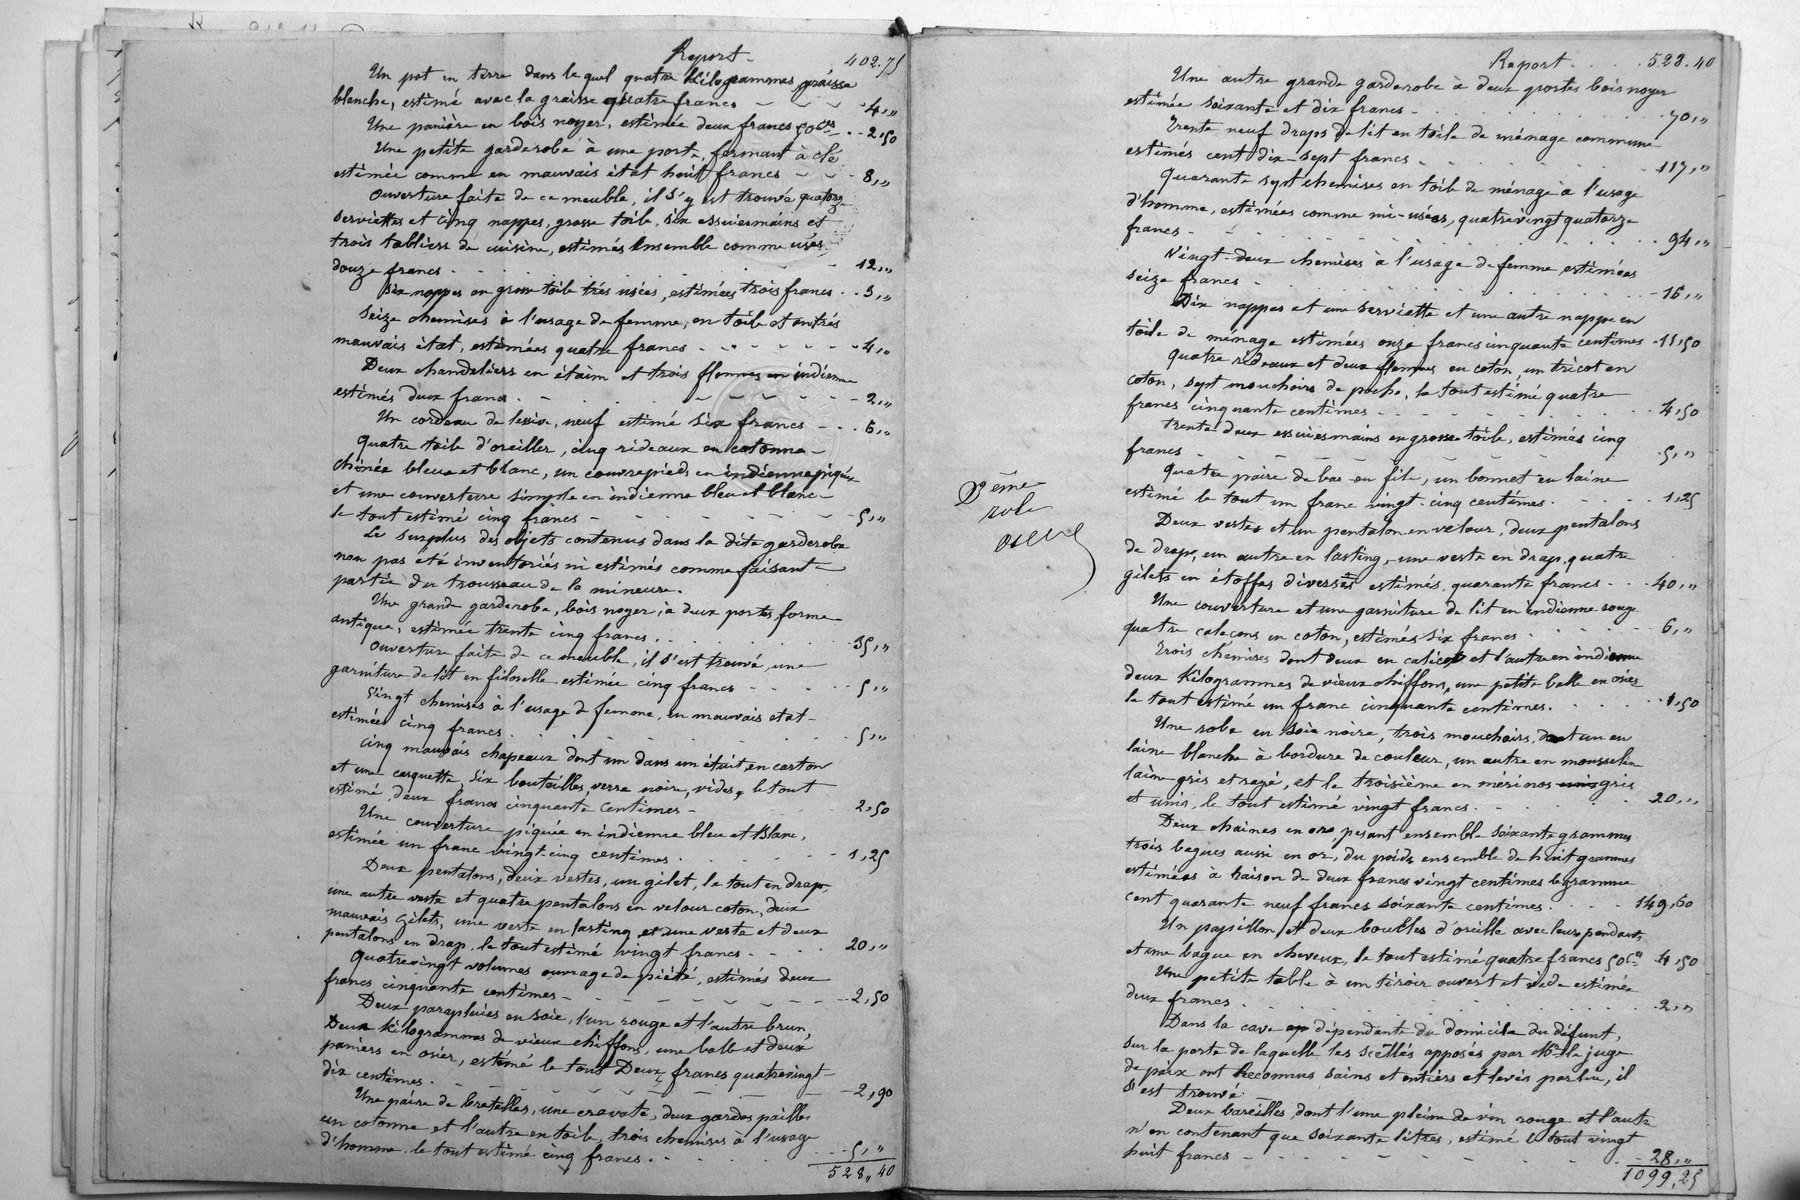 Report - 402.75
Un pot en terre dans le quel quatre Kilogrammes graisse
blanche, estimé avec la graisse quatre francs - - - 4,,
Une panière en bois noyer, estimée deux francs 50 ces - . - 2,50
Une petite garderobe à une porte, fermant à clé
estimée comme en mauvais état huit francs - - - 8,,
Ouverture faite de ce meuble, il s'y est trouvé quatorze
serviettes et cinq nappes, grosse toile, six essuiermains et
trois tabliers de cuisine, estimés ensemble comme usés
douze francs - . . . . . . . - 12,,
Six nappes en grosse toile très usées, estimées trois francs . . 3,,
Seize chemises à l'usage de femme, en toile et en très
mauvais état, estimées quatre francs - . - - - - - 4,,
Deux chandeliers en étaim et trois flemmes en indienne
estimés deux francs . - - - - - - 2,,
Un cordeau de lessive, neuf estimé six francs - - . 6,,
Quatre toile d'oreiller, cinq rideaux en cotonne
chinée bleue et blanc, un couvrepieds en indienne piquée
et une couverture simple en indienne bleu et blanc -
le tout estimé cinq francs - - - - - - - 5,,
Le surplus des objets contenus dans la dite garderobe
non pas été inventoriés ni estimés comme faisant
partie du trousseau de la mineure.
Une grande garderobe, bois noyer, à deux portes forme
antique, estimée trente cinq francs . . . . . . 35,,
Ouverture faite de ce meuble, il s'est trouvé, une
garniture de lit en filoselle, estimée cinq francs - - - 5,,
Vingt chemises à l'usage de femme, en mauvais etat -
estimées cinq francs . . . . . . . 5,,
Cinq mauvais chapeaux dont un dans un étui, en carton
et une casquette, six bouteilles, verre noire, vides, le tout
estimé, deux francs cinquante centimes - 2,50
Une couverture piquée en indienne bleu et blanc,
estimée un franc vingt-cinq centimes . . . . . - 1,25
Deux pentalons, deux vestes, un gilet, le tout en drap,
une autre veste et quatre pentalons en velour coton, deux
mauvais gilets, une veste en lasting et une veste et deux
pentalons en drap, le tout estimé vingt francs - . . 20,,
Quatrevingt volumes ouvrage de piété, estimés deux
francs cinquante centimes - - - - - - - 2,50
Deux parapluies en soie, l'un rouge et l'autre brun,
Deux kilogrammes de vieux chiffons, une balle et deux
paniers en osier, estimé le tout Deux francs quatrevingt
dix centimes . - - - - - - 2,90
Une paire de bretelles, une cravate, deux gardes pailles
un cotonne et l'autre en toile, trois chemises à l'usage
d'homme, le tout estimé cinq francs . . . . . - 5,,
528,,40
Report . . . 528.40
Une autre grande garderobe à deux portes bois noyer
estimée soixante et dix francs - . . . . . . 70,,
Trente neuf draps de lit en toile de ménage commune
estimés cent dix-sept francs - . . . . . - 117,,
Quarante sept chemises en toile de ménage à l'usage
d'homme, estimées comme mi-usées, quatrevingt quatorze
francs - - . . . . . . . . 94,,
Vingt-deux chemises à l'usage de femme, estimées
seize francs - . . . . . . . . - 16,,
Dix nappes et une serviette et une autre nappe en
toile de ménage estimées onze francs cinquante centimes - 11,50
Quatre rideaux et deux flemmes en coton, un tricot en
coton, sept mouchoirs de poche, le tout estimé quatre
francs cinquante centimes - - - - - - - 4,50
Trente deux essuiesmains en grosse toile, estimés cinq
francs - - - - - - - - 5,,
Quatre paire de bas en fil, un bonnet en laine
estimé le tout un franc vingt-cinq centimes . - - - 1,25
Deux vestes et un pentalon en velour, deux pentalons
de drap, un autre en lasting, une veste en drap, quatre
gilets en étoffes diverses estimés, quarante francs - . - 40,,
Une couverture et une garniture de lit en indienne rouge
quatre calecons en coton, estimés six francs . . . . - 6,,
Trois chemises dont deux en calicot et l'autre en indienne
deux Kilogrammes de vieux chiffons, une petite balle en osier
le tout estimé un franc cinquante centimes . . . . - 1,50
Une robe en soie noire, trois mouchoirs, dont un en
laine blanche à bordure de couleur, un autre en mousseline
laine gris et rayé, et le troisième en mérinos uni gris
et unis, le tout estimé vingt francs - . . . . . 20,,
Deux chaines en or, pesant ensemble soixante grammes
trois bagues aussi en or, du poids ensemble de huit grammes
estimées à raison de deux francs vingt centimes le gramme
cent quarante neuf francs soixante centimes . . . . 149,60
Un papillon et deux boucles d'oreille avec leurs pendants
et une bague en cheveux, le tout estimé quatre francs 50 ces 4,50
Une petite table à un tiroir ouvert et vide estimée
deux francs . . . . . . . . . 2,,
Dans la cave dépendante du domicile du défunt,
sur la porte de laquelle les scèllés apposés par Mr le juge
de paix ont Reconnus sains et entiers et levés par lui, il
s'est trouvé
Deux bareilles, dont l'une pleine de vin rouge et l'autre
n'en contenant que soixante litres, estimé le tout vingt
huit francs - - - - - - - - 28,,
1099,25
eme
role